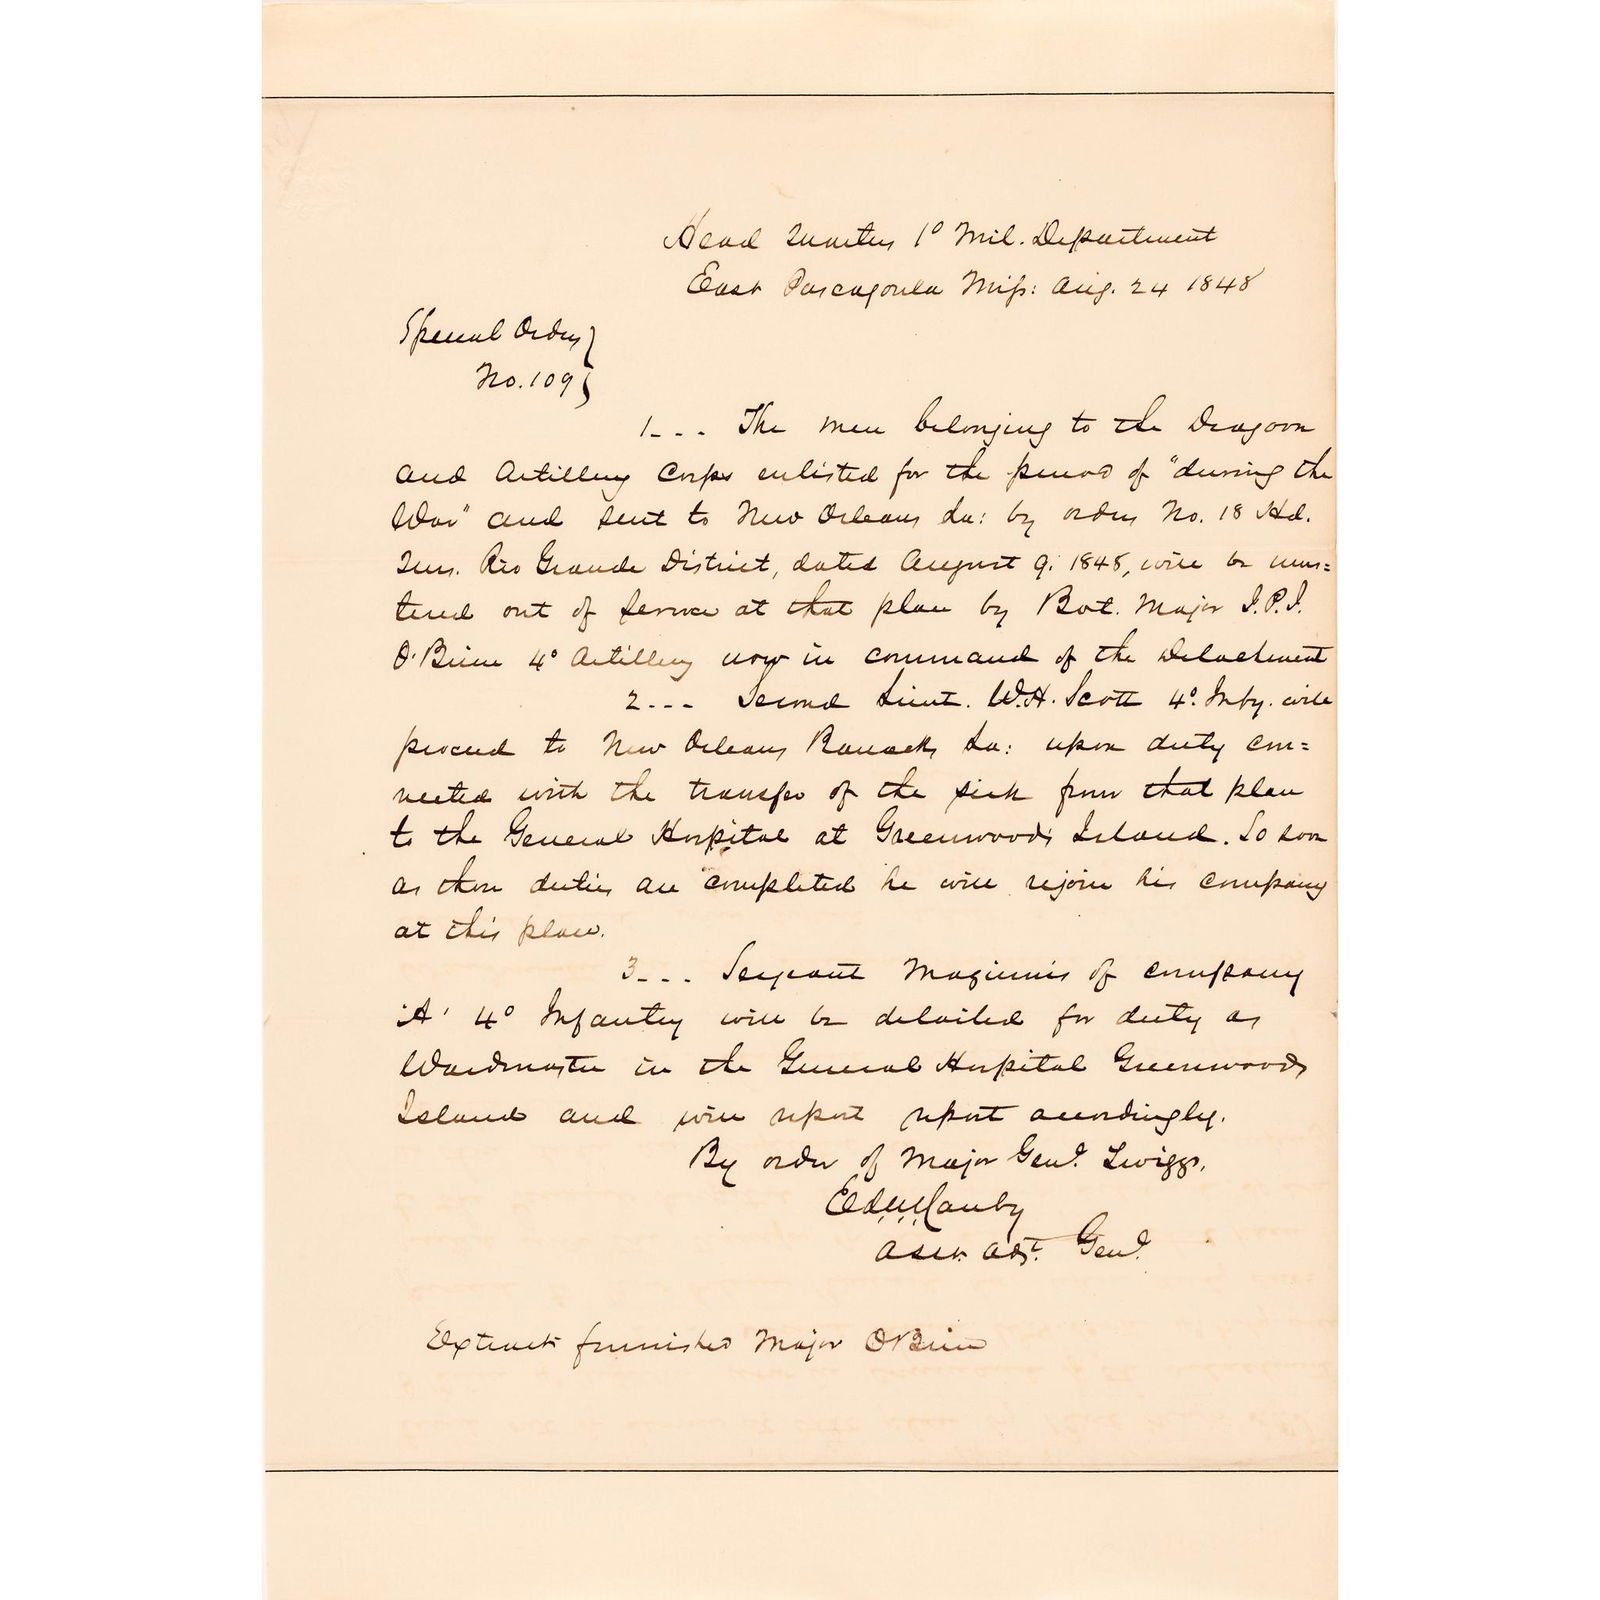 Head Quarters 1º Mil. Department
East Pascagoula Miss: Aug. 24 1848
Special Orders }
No. 109 }
1 - - - The men belonging to the Dragoon
and Artillery Corps enlisted for the period of "during the
War" and sent to New Orleans La: by orders No. 18 Hd.
Qurs. Rio Grande District, dated August 9. 1848, will be mus=
tered out of service at that place by Bvt. Major J.P.J.
O'Brien 4º Artillery now in command of the Detachment
2 - - - Second Lieut. W.H. Scott 4º. Infy. will
proceed to New Orleans Barracks La: upon duty con=
nected with the transfer of the sick from that place
to the General Hospital at Greenwoods Island. So soon
as those duties are completed he will rejoin his company
at this place.
3 - - - Sergeant Maginnis of company
'A' 4º Infantry will be detailed for duty as
Wardmaster in the General Hospital Greenwoods
Island and will report report accordingly.
By order of Major Genl. Twiggs.
Ed. R. S. Canby
Asst. Adjt. Genl.
Extract furnished Major O'Brien